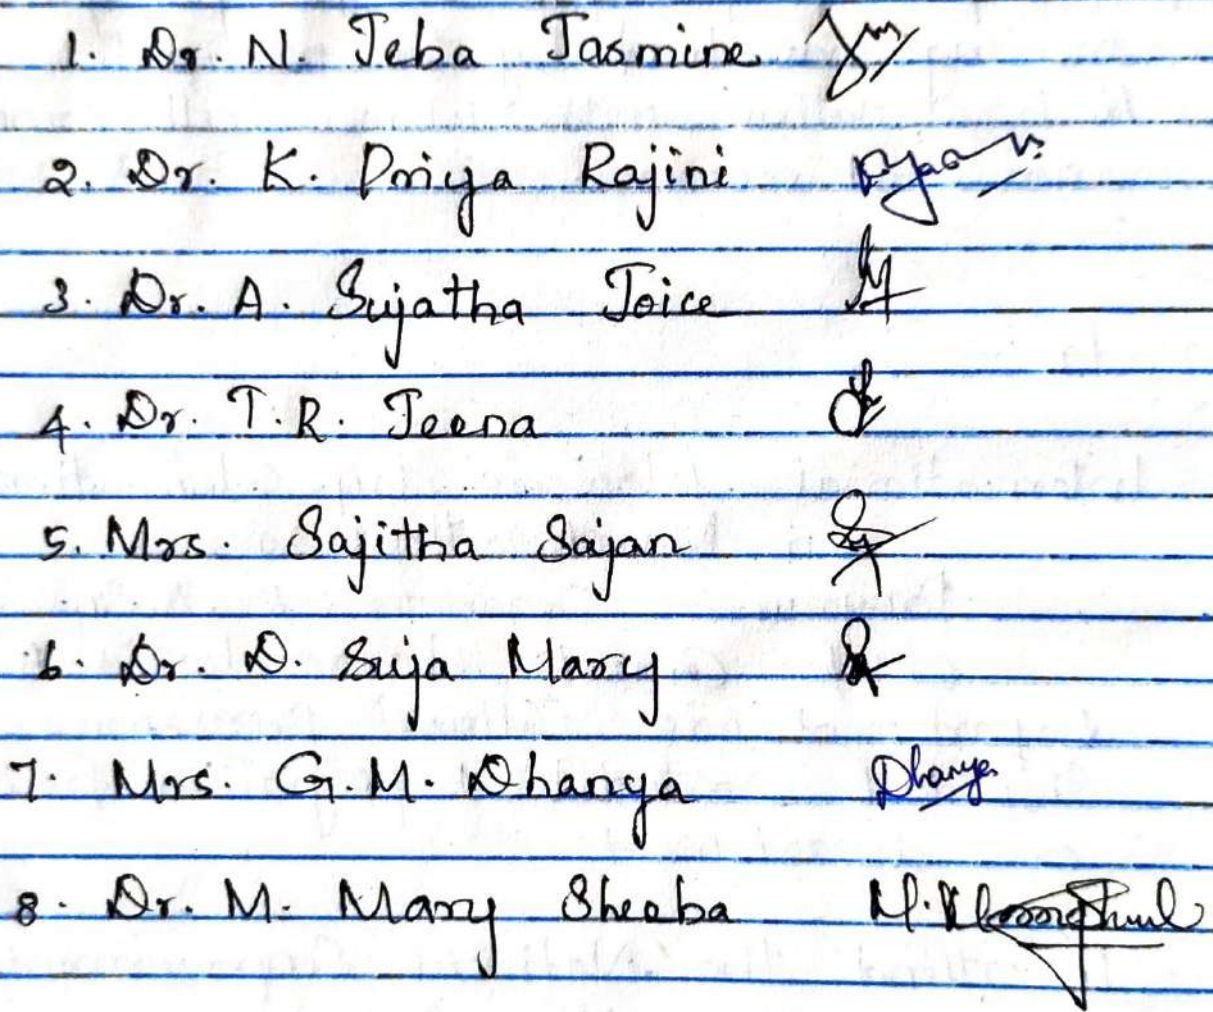 1. Dr. N. Jeba Jasmine
2. Dr. K. Priya Rajini
3. Dr. A. Sujatha Joice
4. Dr. T.R. Jeena
5. Mrs. Sajitha Sajan
6. Dr. D. Suja Mary
7. Mrs. G.M. Dhanya Dhanya
8. Dr. M. Mary Sheeba